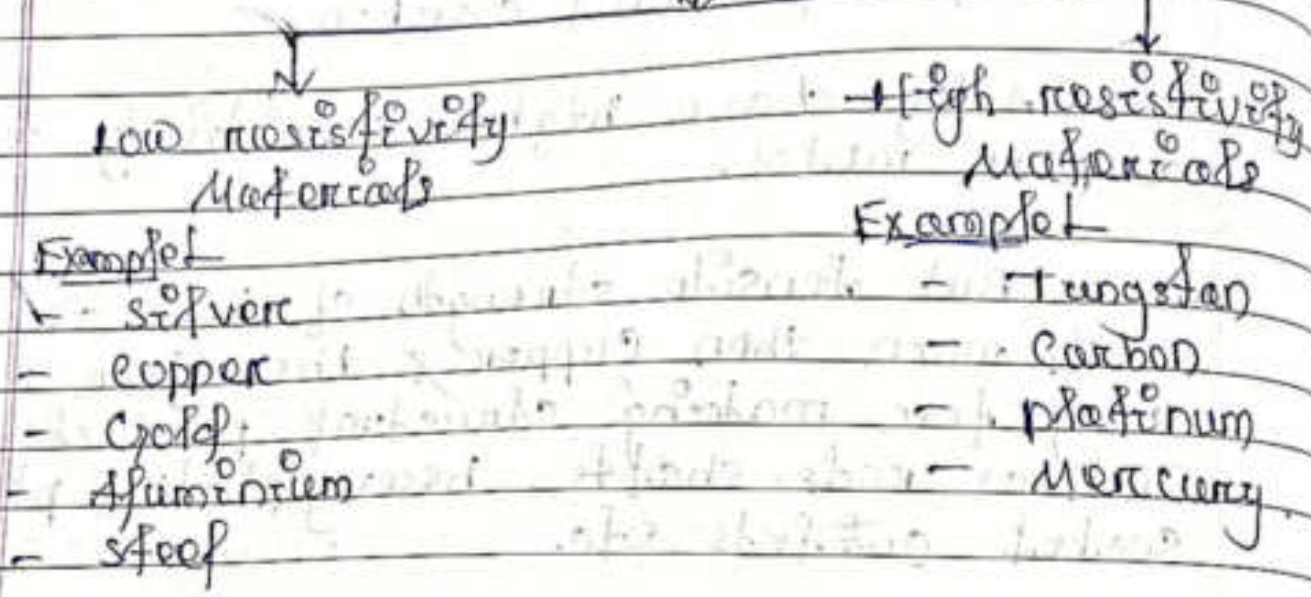 Low resistivity
Materials
Example:-
- Silver
- Copper
- Gold
- Aluminium
- Steel
High resistivity
Materials
Example:-
- Tungstan
- Carbon
- Platinum
- Mercury